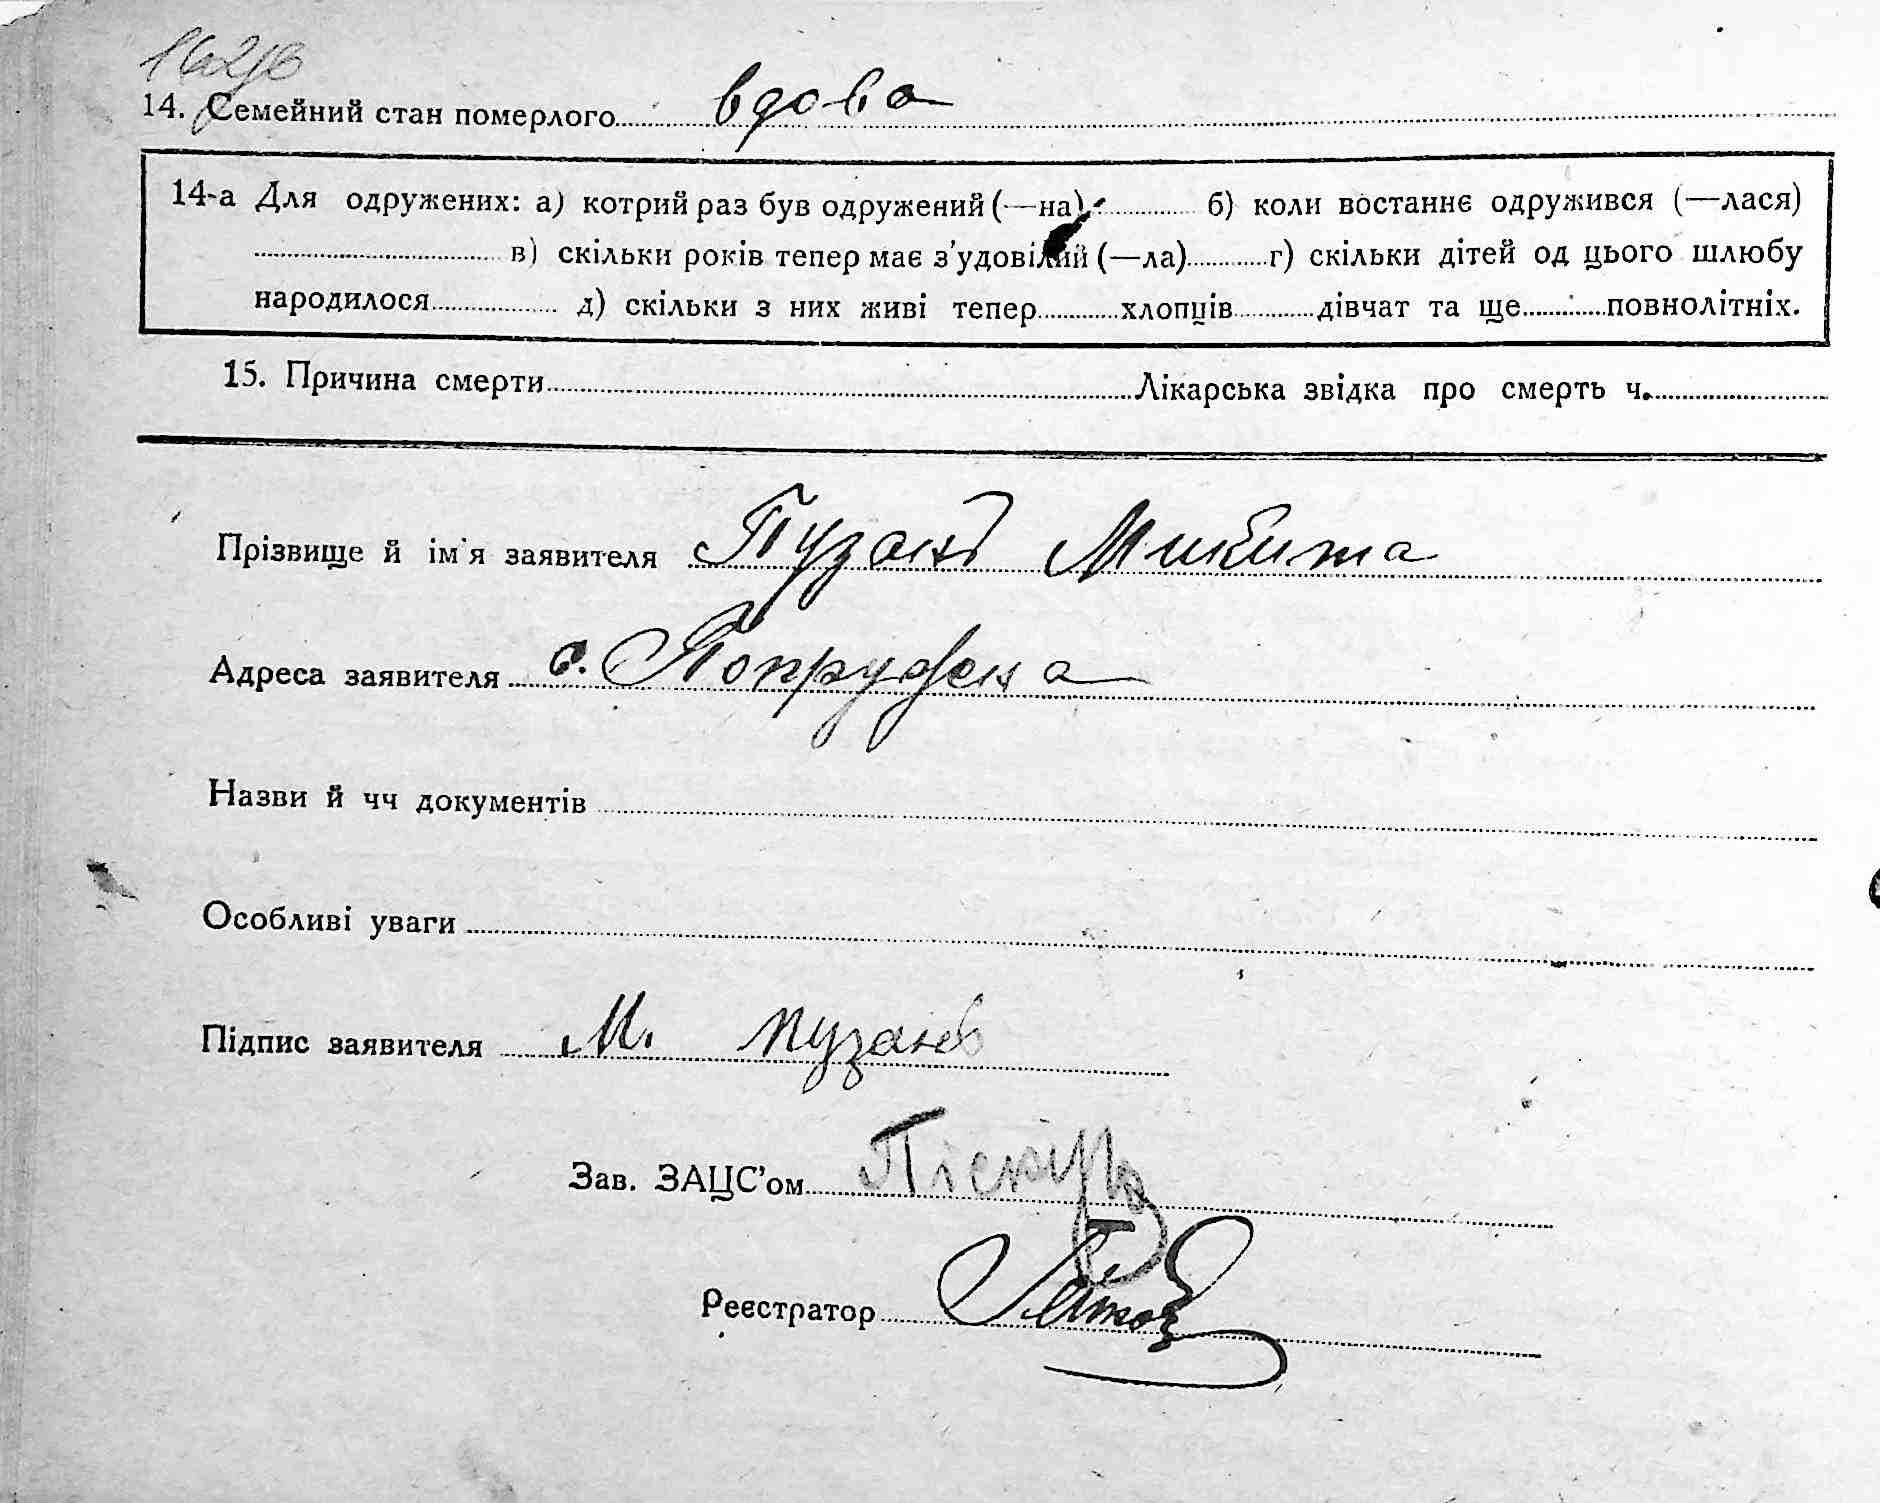 162зв
14. Семейний стан померлого вдова
14-а Для одружених: а) котрий раз був одружений (—на) б) коли востаннє одружився (—лася)
в) скільки років тепер має з'удовілий (—ла) г) скільки дітей од цього шлюбу
народилося д) скільки з них живі тепер хлопців дівчат та ще повнолітніх.
15. Причина смерти Лікарська звідка про смерть ч.
Прізвище й ім'я заявителя Пузанів Микита
Адреса заявителя с. Попружна
Назви й чч документів
Особливі уваги
Підпис заявителя М. Пузанів
Зав. ЗАЦС'ом
Реєстратор